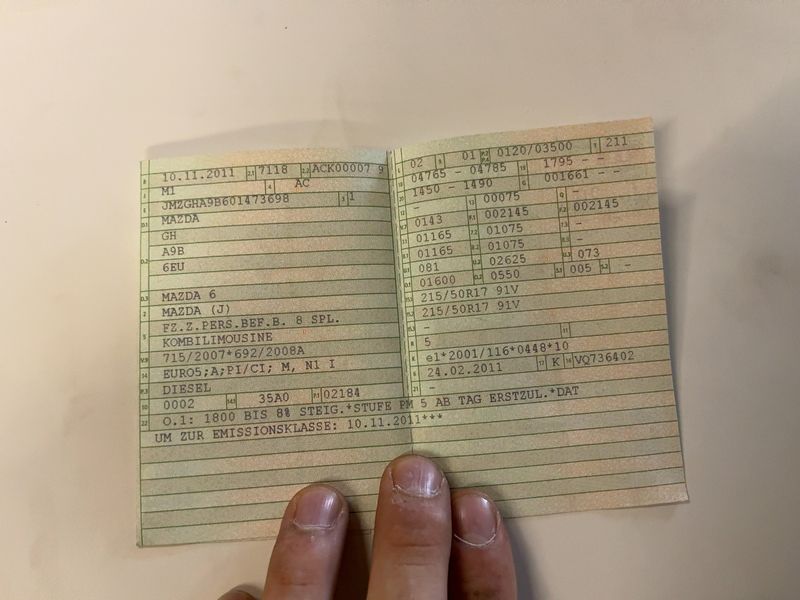 B 10.11.2011 2.1 7118 2.2 ACK00007 9
J M1 4 AC
E JMZGHA9B601473698 3 1
D.1 MAZDA
GH
D.2 A9B
6EU
D.3 MAZDA 6
2 MAZDA (J)
5 FZ.Z.PERS.BEF.B. 8 SPL.
KOMBILIMOUSINE
V.9 715/2007*692/2008A
14 EURO5;A;PI/CI; M, N1 I
P.3 DIESEL
10 0002 14.1 35A0 P.1 02184
22 O.1: 1800 BIS 8% STEIG.*STUFE PM 5 AB TAG ERSTZUL.*DAT
UM ZUR EMISSIONSKLASSE: 10.11.2011***
L 02 9 01 P.2 P.4 0120/03500 T 211
18 04765 - 04785 19 1795 - -
20 1450 - 1490 G 001661 - -
12 - 13 00075 Q -
V.7 0143 F.1 002145 F.2 002145
7.1 01165 7.2 01075 7.3 -
8.1 01165 8.2 01075 8.3 -
U.1 081 U.2 02625 U.3 073
O.1 01600 O.2 0550 S.1 005 S.2 -
15.1 215/50R17 91V
15.2 215/50R17 91V
15.3 -
R 5 11
K e1*2001/116*0448*10
6 24.02.2011 17 K 16 VQ736402
21 -